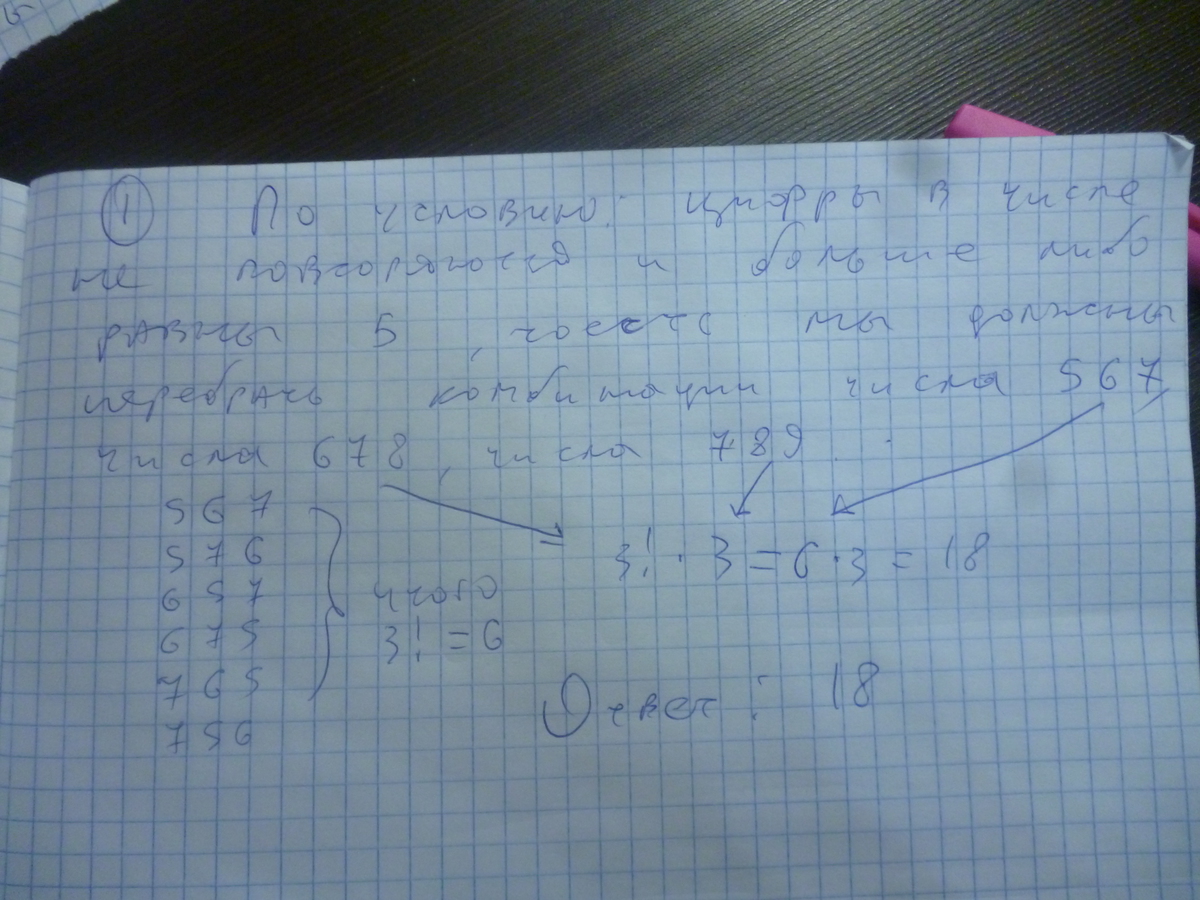 ① По условию: цифры в числе
не повторяются и больше либо
равны 5, тоесть мы должны
перебрать комбинации числа 567,
числа 678, числа 789.
567
576
657
675
765
756
итого
3! = 6
3! · 3 = 6 · 3 = 18
Ответ: 18